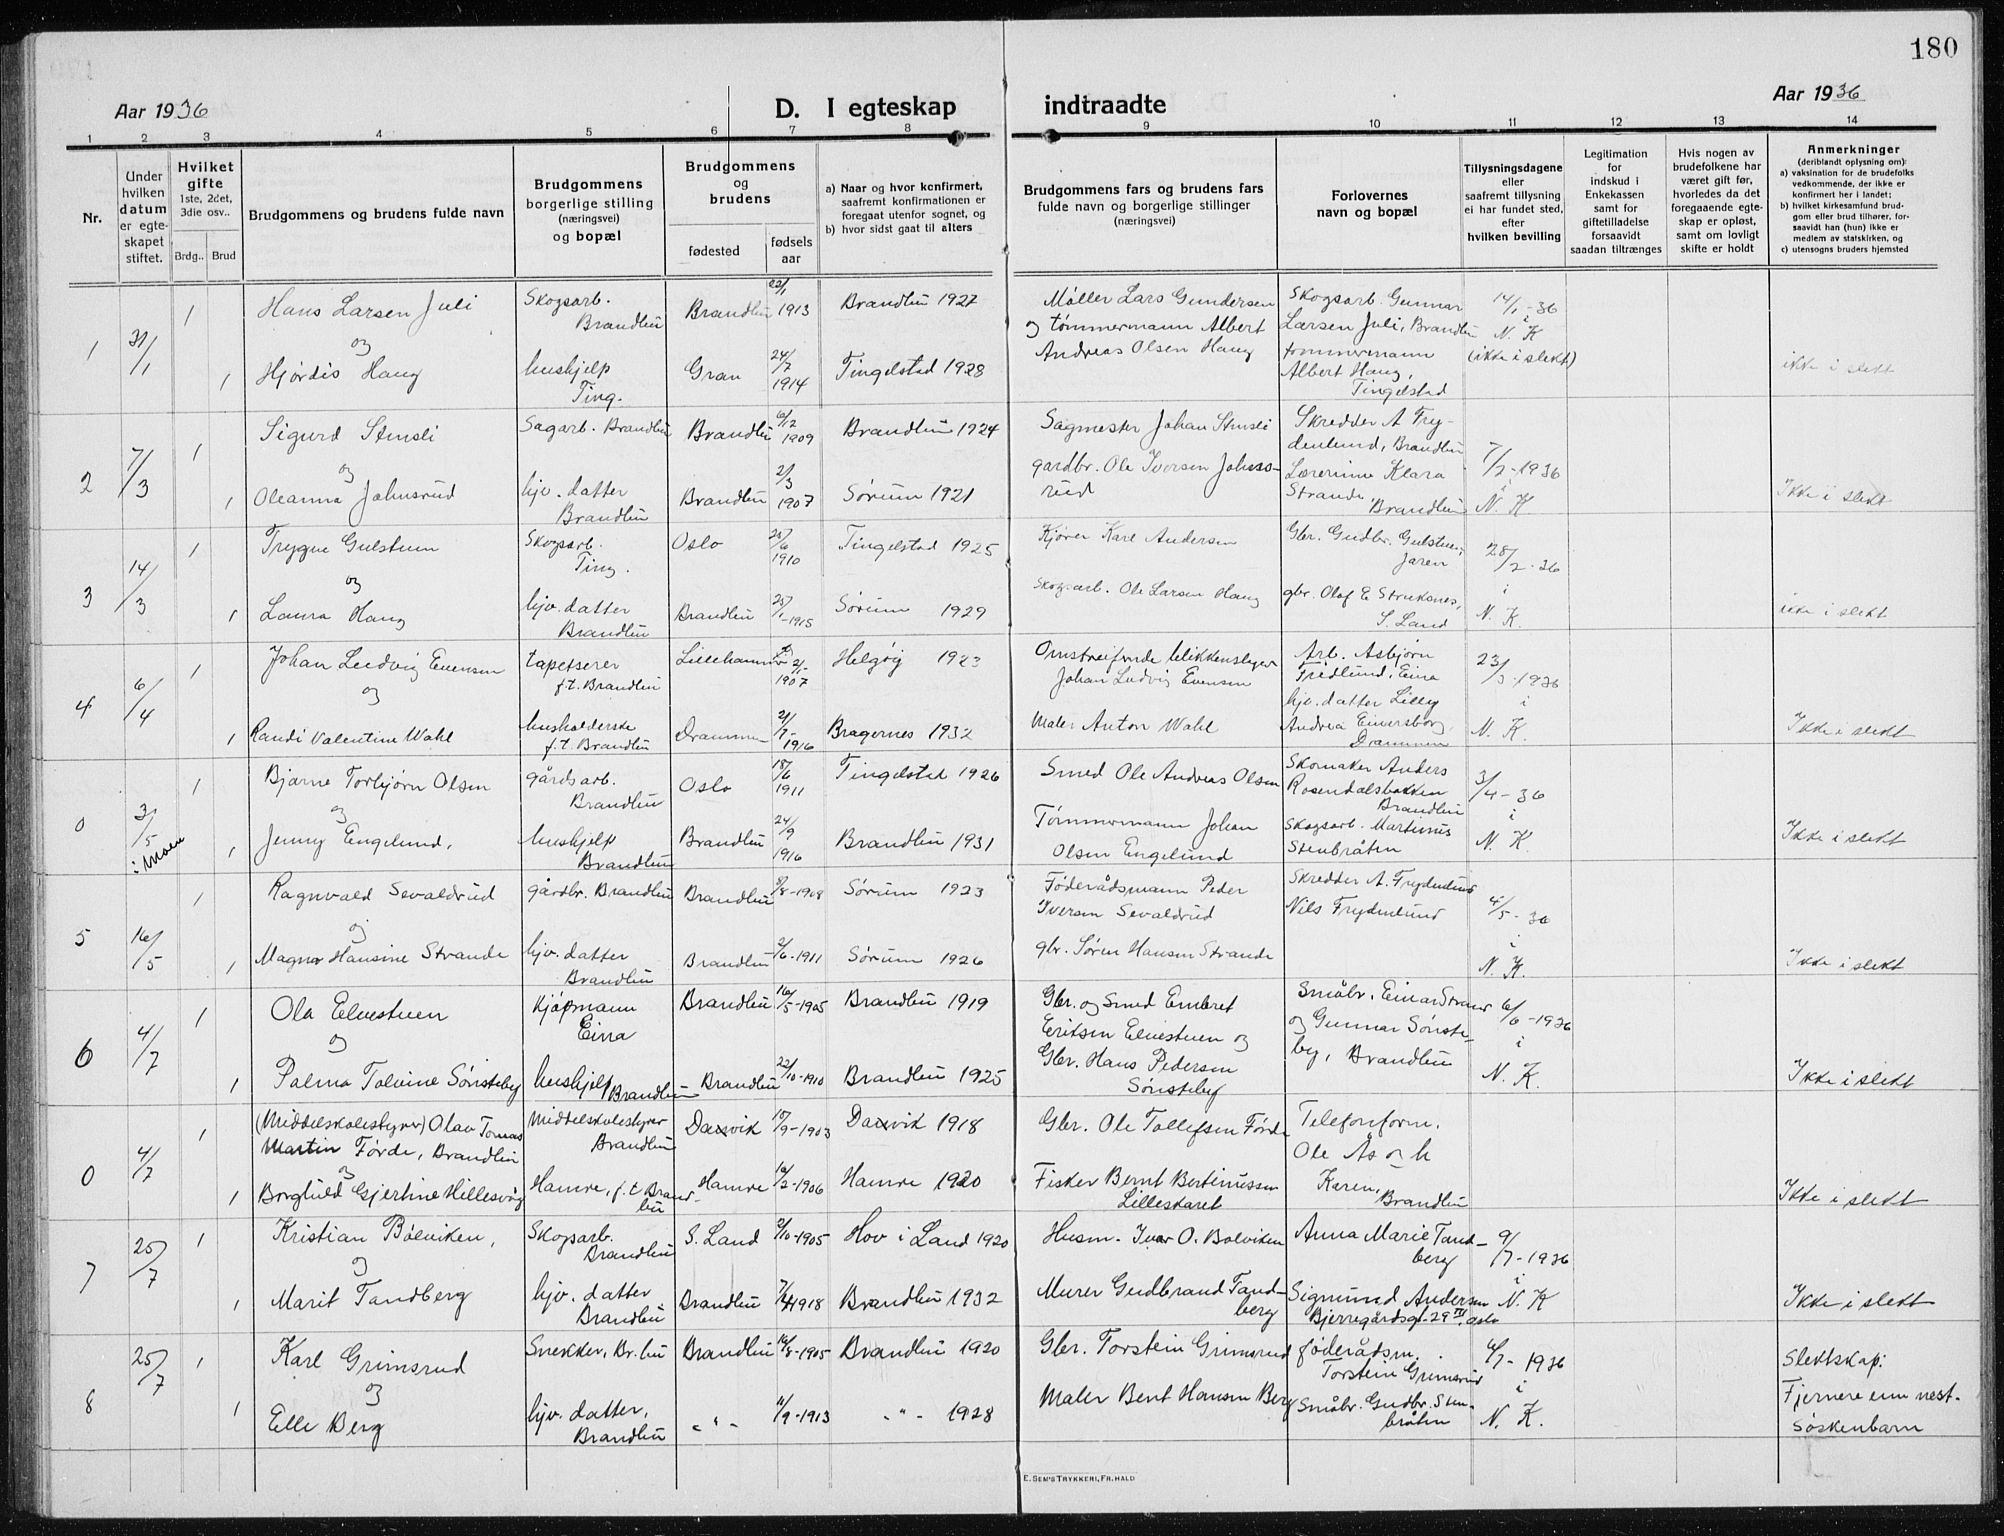 180
Aar 1936
D. I egteskap indtraadte
Aar 1936
1 2 3 4 5 6 7 8 9 10 11 12 13 14
Nr.
Under hvilken datum er egteskapet stiftet.
Hvilket gifte
1ste, 2det, 3die osv..
Brdg.. Brud
Brudgommens og brudens fulde navn
Brudgommens borgerlige stilling (næringsvei) og bopæl
Brudgommens og brudens
fødested
fødsels aar
a) Naar og hvor konfirmert, saafremt konfirmationen er foregaat utenfor sognet, og
b) hvor sidst gaat til alters
Brudgommens fars og brudens fars fulde navn og borgerlige stillinger (næringsvei)
Forlovernes navn og bopæl
Tillysningsdagene eller saafremt tillysning ei har fundet sted, efter hvilken bevilling
Legitimation for indskud i Enkekassen samt for giftetilladelse forsaavidt saadan tiltrænges
Hvis nogen av brudefolkene har været gift før, hvorledes da det foregaaende egteskap er opløst, samt om lovligt skifte er holdt
Anmerkninger
(deriblandt oplysning om):
a) vaksination for de brudefolks vedkommende, der ikke er konfirmert her i landet;
b) hvilket kirkesamfund brudgom eller brud tilhører, forsaavidt han (hun) ikke er medlem av statskirken, og
c) utensogns bruders hjemsted
1 31/1 1 Hans Larsen Juli Skogsarb. Brandbu Brandbu 22/1 1913 Brandbu 1927 Møller Lars Gundersen Skogsarb. Gunnar Larsen Juli, Brandbu 14/1-36
og og tømmermann Albert i N. K
1 Hjørdis Haug hushjelp Ting. Gran 24/7 1914 Tingelstad 1928 Andreas Olsen Haug tømmermann Albert Haug, Tingelstad (ikke i slekt) ikke i slekt
2 7/3 1 Sigurd Stensli Sagarb. Brandbu Brandbu 6/12 1909 Brandbu 1924 Sagmester Johan Stensli Skredder A Frydenlund, Brandbu 7/2-1936
og
1 Oleanna Johnsrud hjv. datter Brandbu Brandbu 2/3 1907 Sørum 1921 gardbr. Ole Iversen Johnsrud Lærerinne Klara Strande, Brandbu i N. K. Ikke i slekt
3 14/3 1 Trygve Gulstuen Skogsarb. Ting. Oslo 25/6 1910 Tingelstad 1925 Kjører Karl Andersen Gbr. Gudbr. Gulstuen, Jaren 28/2-36
og
1 Laura Haug hjv. datter Brandbu Brandbu 25/1-1915 Sørum 1929 Skogsarb. Ole Larsen Haug gbr. Olaf E S. Land i N. K. ikke i slekt
4 6/4 1 Johan Ludvig Evensen tapetserer f.t. Brandbu Lillehammer 2/ 1907 Helgøy 1923 Omstreifende blikkenslager Johan Ludvig Evensen Arb. Asbjørn Fredlund, Eina 23/3-1936
og
1 Randi Valentine Wahl husholderske f.t. Brandbu Drammen 21/7-1916 Bragernes 1932 Maler Anton Wahl hjv. datter Lilly Andrea Einersborg, Drammen i N. K. Ikke i slekt
0 3/5 i Moen 1 Bjarne Torbjørn Olsen gårdsarb. Brandbu Oslo 18/6 1911 Tingelstad 1926 Smed Ole Andreas Olsen Skomaker Anders Rosendalsbakken Brandbu 3/4-36
og
1 Jenny Engelund, hushjelp Brandbu Brandbu 24/9 1916 Brandbu 1931 Tømmermann Johan Olsen Engelund Skogsarb. Martinus Stenbråten i N. K. Ikke i slekt
5 16/5 1 Ragnvald Sevaldrud gårdbr. Brandbu Brandbu 8/8-1908 Sørum 1923 Føderådsmann Peder Iversen Sevaldrud Skredder A. Frydenlund Nils Frydenlund 4/5-36
og
1 Magna Hansine Strande hjv. datter Brandbu Brandbu 2/6-1911 Sørum 1926 gbr. Søren Hansen Strande i N. K. Ikke i slekt
6 4/7 1 Ola Elvestuen Kjøpmann Eina Brandbu 16/5-1905 Brandbu 1919 Gbr. og Smed Embret Eritsen Elvestuen og Småbr. Einar Strande og Gunnar Sønsteby, Brandbu 6/6-1936
og
1 Palma Talvine Sønsteby hushjelp Brandbu Brandbu 22/10-1910 Brandbu 1925 Gbr. Hans Pedersen Sønsteby i N. K. Ikke i slekt
0 4/7 1 (Middelskolestyrer) Olav Tomas Martin Førde, Brandbu Middelskolestyrer Brandbu Davik 15/9-1903 Davik 1918 Gbr. Ole Tollefsen Førde Telefonform. Ole Ås og h
og
1 Borghild Gjertine Hillesvåg Hamre, f.t Brandbu Hamre 10/2-1906 Hamre 1920 Fisker Bernt Bertinussen Lilleskaret Karen, Brandbu Ikke i slekt
7 25/7 1 Kristian Bølviken, Skogsarb. Brandbu S. Land 2/10-1905 Hov i Land 1920 Husm. Ivar O. Bølviken Anna Marie Tandberg 9/7-1936
og
1 Marit Tandberg hjv. datter Brandbu Brandbu 7/4 1918 Brandbu 1932 Murer Gudbrand Tandberg Sigmund Andersen Bjerregårdsgt. 29 III, Oslo i N. K Ikke i slekt
8 25/7 1 Karl Grimsrud Snekker, Br.bu Brandbu 16/8-1905 Brandbu 1920 Gbr. Torstein Grimsrud føderådsm. Torstein Grimsrud 6/7-1936 Slektskap:
og
1 Elle Berg hjv. datter, Brandbu - " - 11/9-1913 - " - 1928 Maler Bent Hansen Berg Småbr. Gudbr. Stenbråten i N. K. Fjernere enn nest-søskenbarn
E. SEM'S TRYKKERI, FR.HALD